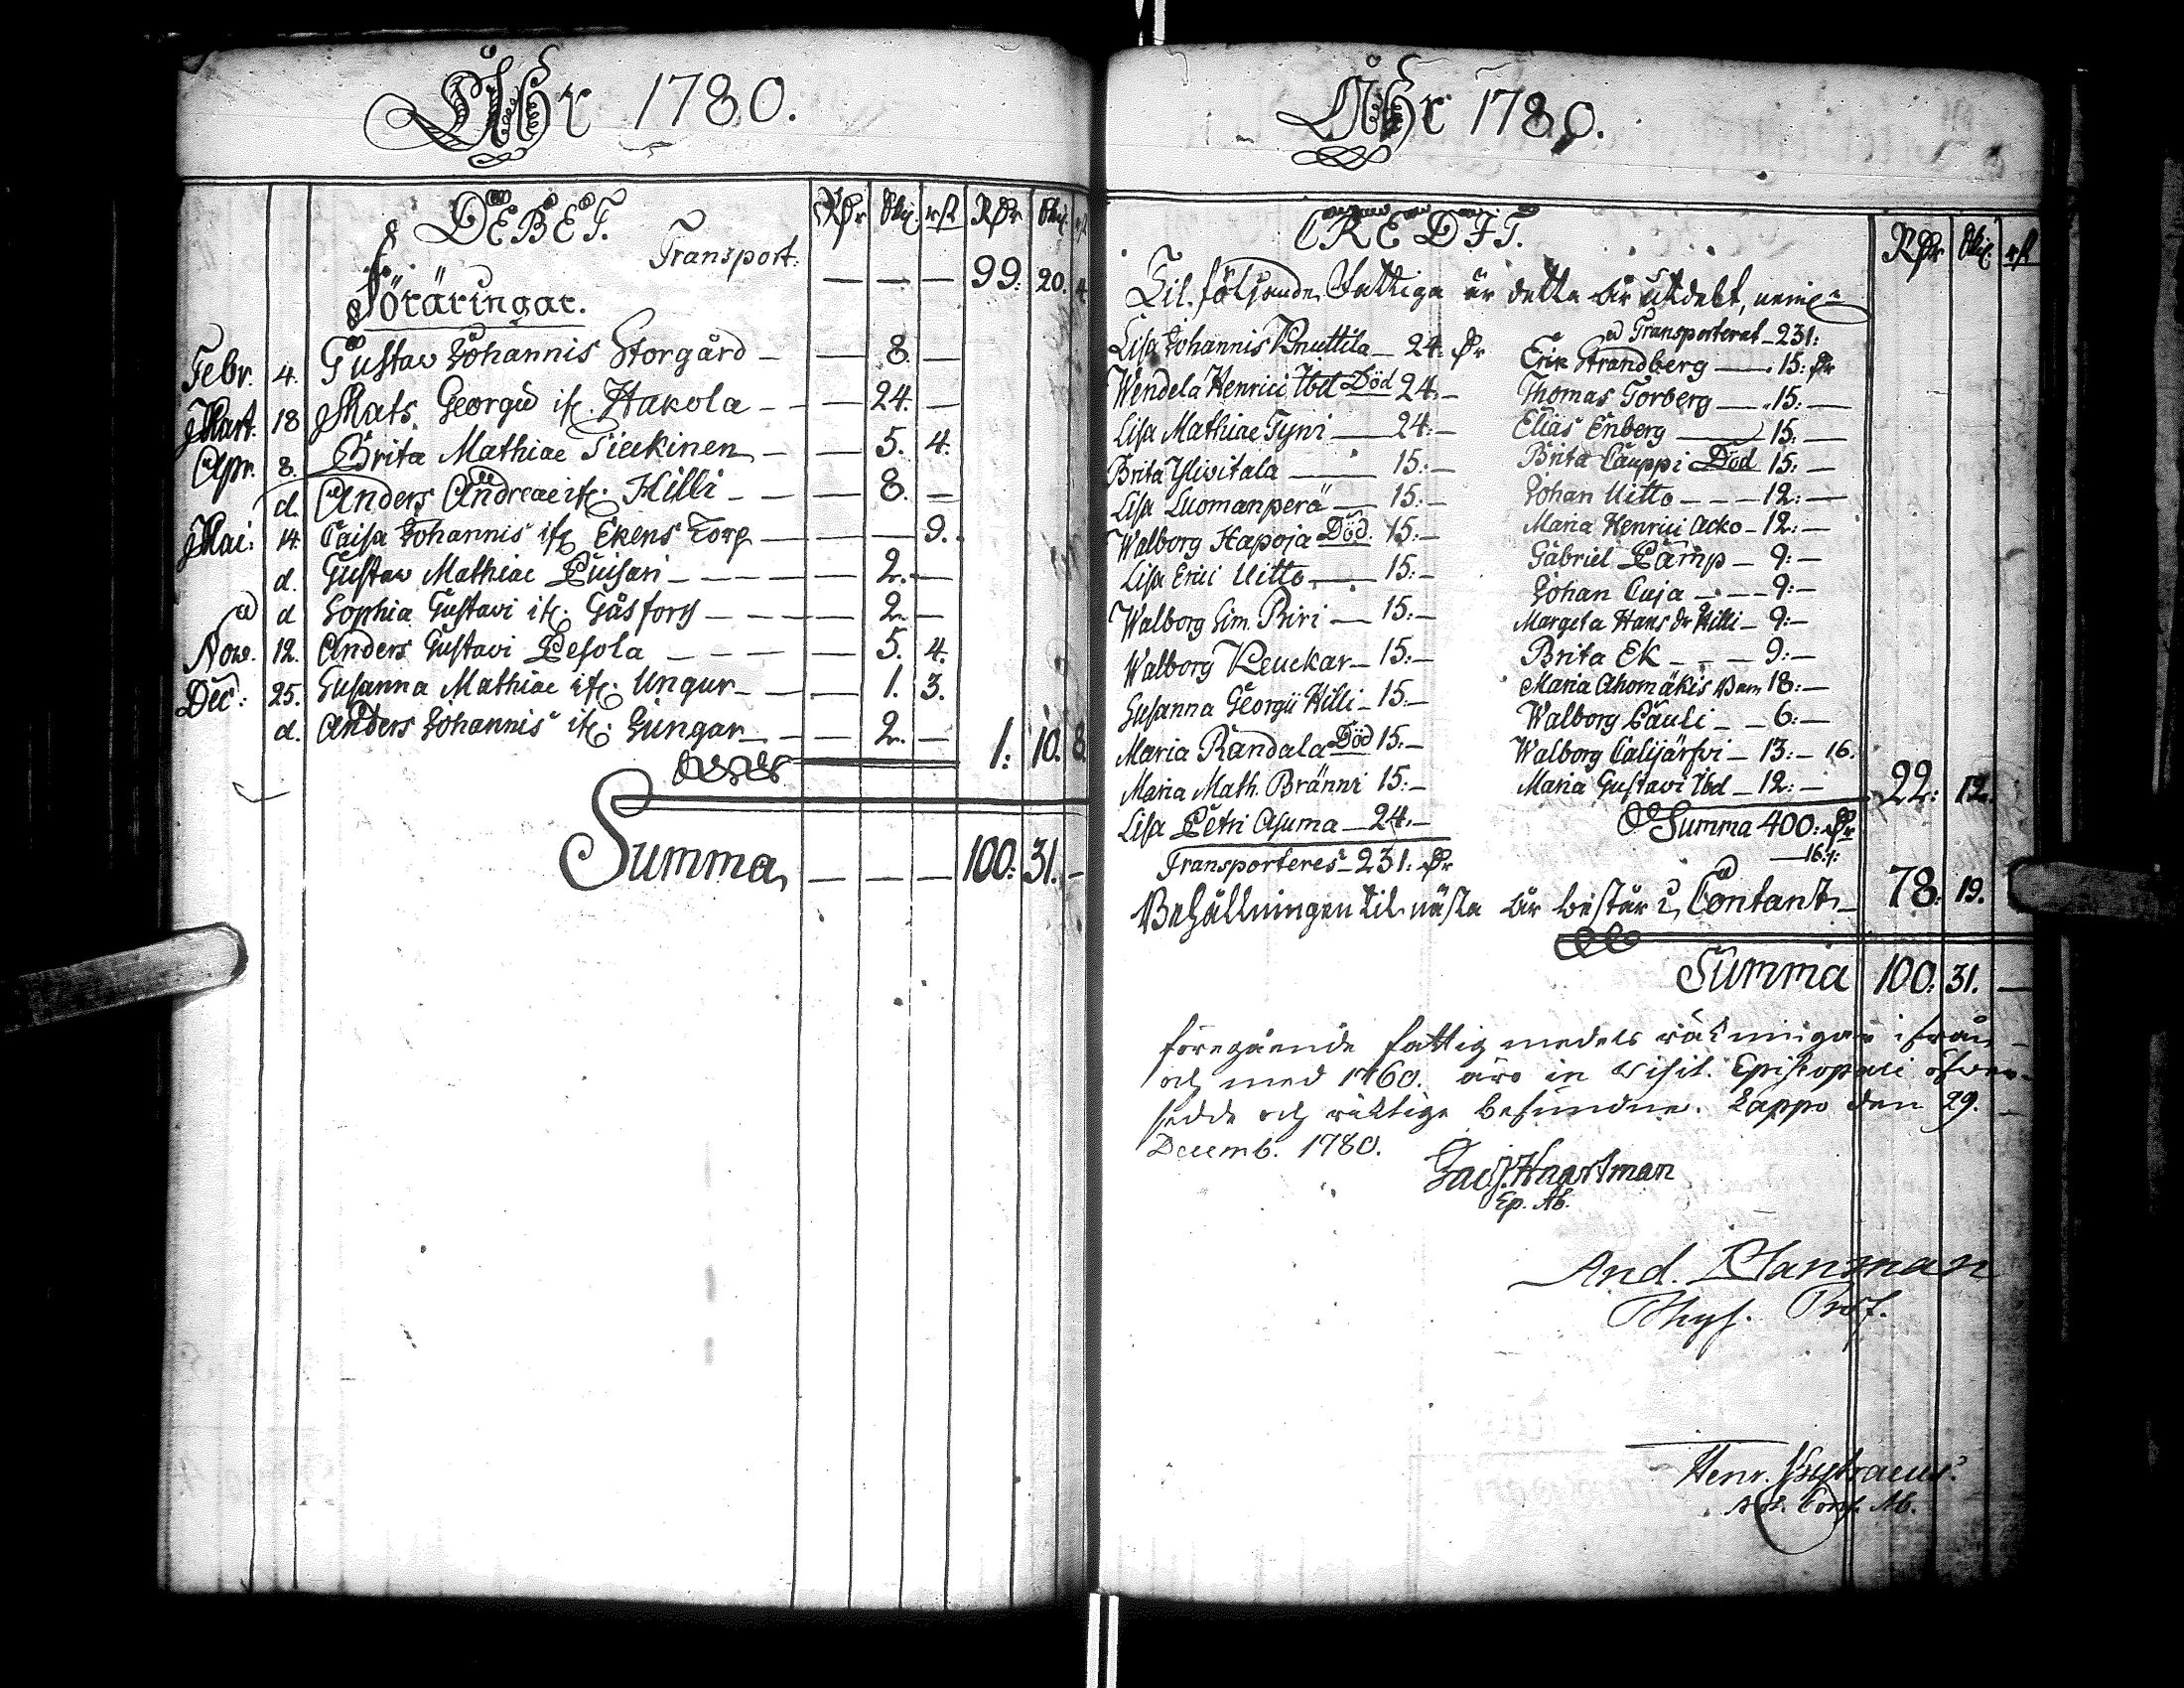 Åhr 1780.
DEBET. RDr Skil. rst RDr Skil. rst
Transport. — — — 99: 20. 4.
Föräringar.
Febr. 4. Gustav Johannis Storgård — — 8. —
Mart. 18 Mats Georgii if. Hakola — — 24. —
Apr. 8. Brita Mathiae — — 5. 4.
d. Anders Andreae if. Hilli — — 8. —
Mai: 14. Caisa Johannis if. Ekens Torp — — — 9.
d. Gustav Mathiae Puisari — — — 2. —
d Sophia Gustavi if. — — — 2. —
Nov. 12. Anders Gustavi Pesola — — — 5. 4.
Dec: 25. Susanna Mathiae if. Ungur — — 1. 3.
d. Anders Johannis if. — — 2. — 1: 10. 8.
Summa — — — 100: 31. —
Åhr 1780.
CREDIT. RDr Skil. rst
Til följande Fattiga är detta år utdelt, nemln
Lisa Johannis Knuttila — 24: Dr
Wendela Henrici Död 24: —
Lisa Mathiae Tyni — 24: —
Brita Ylivitala — 15: —
Lisa Luomanperä — 15: —
Walborg Hapoja Död 15: —
Lisa Erici Uitto — 15: —
Walborg Sim. Piri — 15: —
Walborg Peuckar — 15: —
Susanna Georgii Hilli — 15: —
Maria Randala Död 15: —
Maria Math. Bränni 15: —
Lisa Petri Asuma — 24: —
Transporteres — 231: Dr
Transporterat — 231:
Erik Strandberg — 15: Dr
Thomas Torberg — 15: —
Elias Enberg — 15: —
Brita Cauppi Död 15: —
Johan Uitto — — — 12: —
Maria Henrici Acko — 12: —
Gabriel Camp — 9: —
Johan Caja — — — 9: —
Margeta Hans dr Hilli — 9: —
Brita Ek — — — 9: —
Maria Ahomäkis Barn 18: —
Walborg Pauli — — 6: —
Walborg Calijärfvi — 13: — 16.
Maria Gustavi — 12: — 22: 12.
Summa 400: Dr
— 16:
Behållningen til nästa år består i Contant — 78: 19.
Summa 100: 31. —
föregående fattig medels räkningar ifrån
och med 1760. äro in Visit. Episcopali öfwer-
sedde och riktige befundne. Lappo den 29.
Decemb. 1780.
Jac. Haartman
Ep. Ab.
And. Planman
Phys. Prof.
Henr.
Not. Cons. Ab.